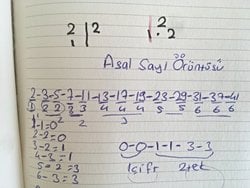 2 | 2
1
2
1 2
Asal Sayı Örüntüsü
2-3-5-7-11-13-17-19-23-29-31-37-41
1 2 2 3 3 4 4 4 5 5 6 6 6
1-1=0
2-2=0
3-2=1
4-3=1
5-2=3
6-3=3
0-0-1-1-3-3
1çift 2tek